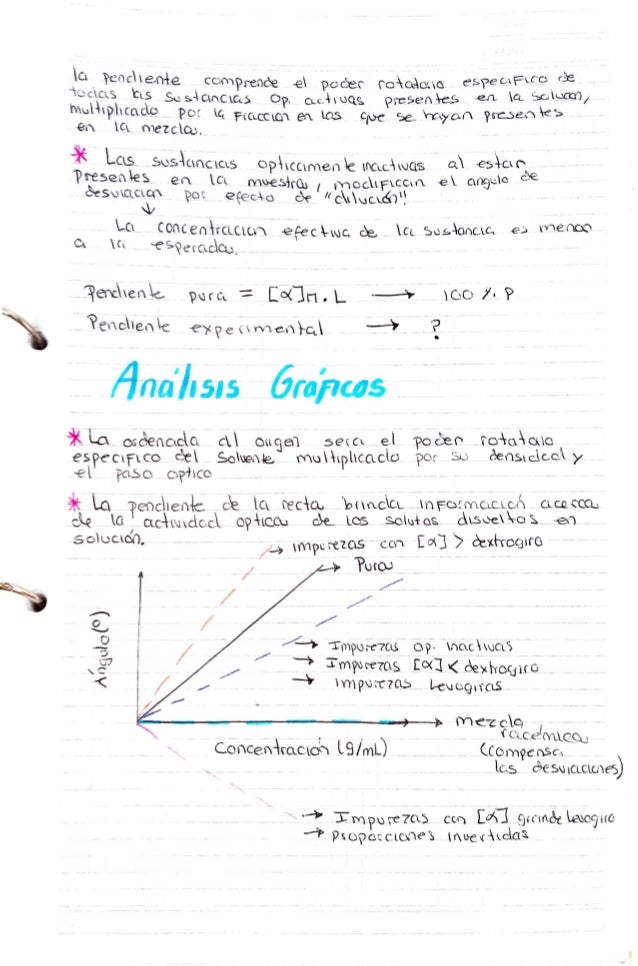 la pendiente comprende el poder rotatorio especifico de
todas las sustancias op. activas presentes en la solucon,
multiplicado por la fracción en las que se hayan presentes
en la mezcla.
* Las sustancias opticamente inactivas al estar
presentes en la muestra, modifican el angulo de
desviación por efecto de "dilución"!
↓
La concentración efectiva de la sustancia es menor
a la esperada.
Pendiente pura = [α]M.L → 100 %. P
Pendiente experimental → ?
Análisis Gráficos
* La ordenada al origen sera el poder rotatorio
especifico del solvente multiplicado por su densidad y
el paso optico
* La pendiente de la recta brinda información acerca
de la actividad optica de los solutos disueltos en
solución.
→ impurezas con [α] > dextrogiro
→ Pura
Ángulo(°)
→ Impurezas op. inactivas
→ Impurezas [α] < dextrogiro
→ impurezas Levogiras
→ mezcla
racémica
(compensa
las desviaciones)
Concentración (g/mL)
→ Impurezas con [α] grande levogiro
→ proporciones invertidas